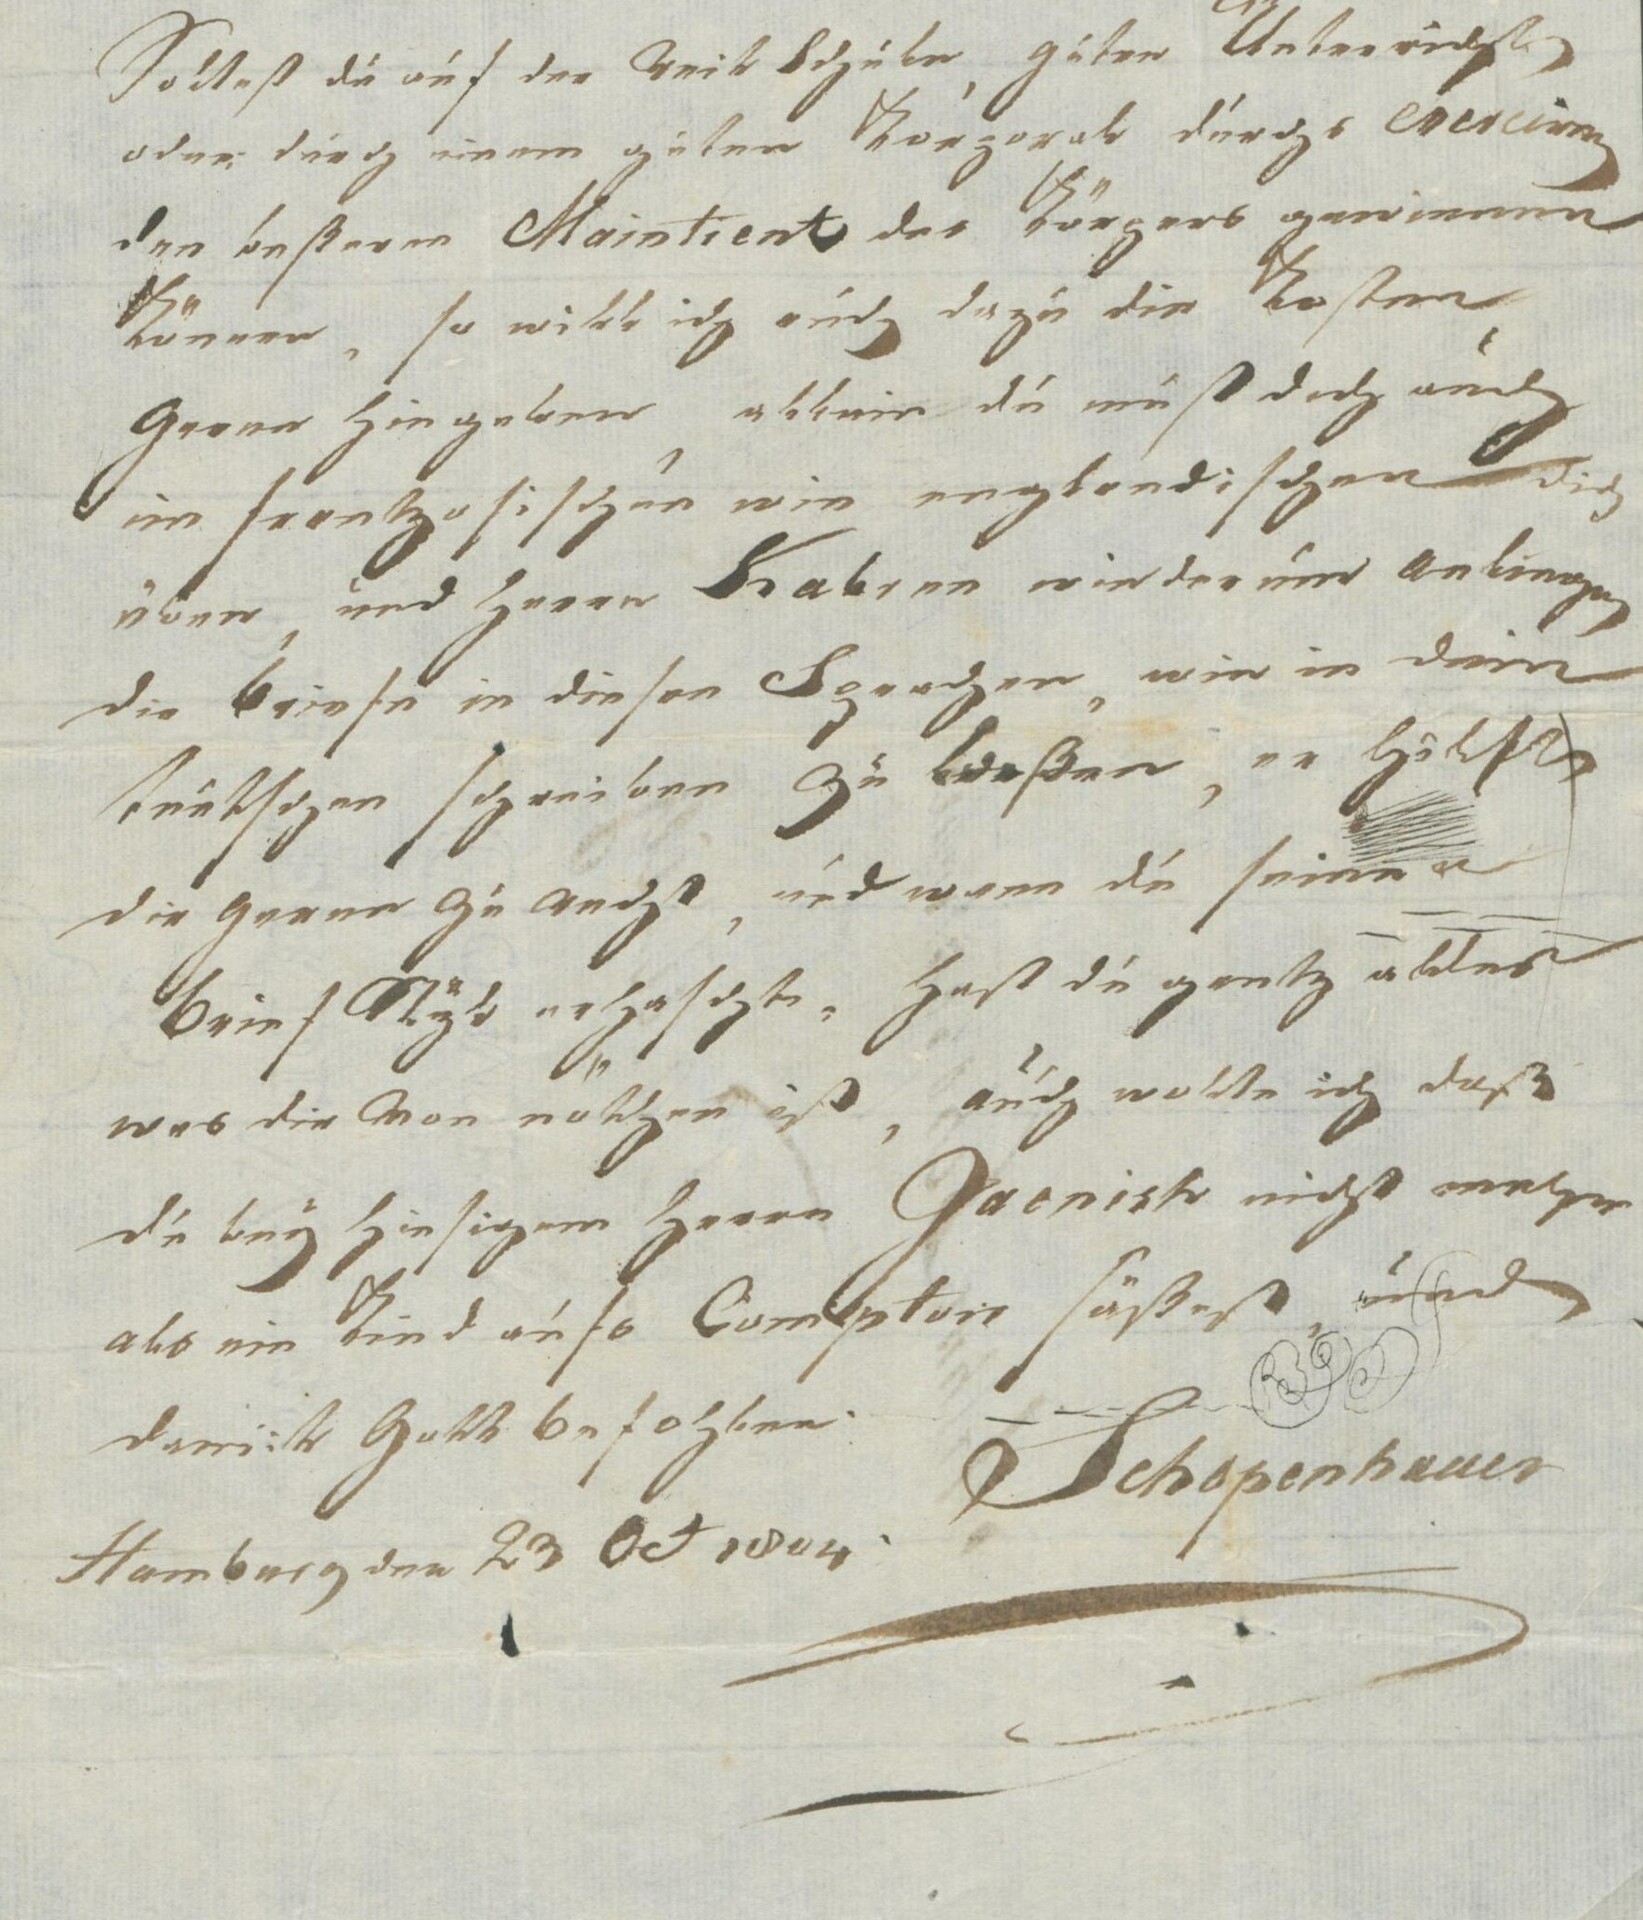 Soltest du auf der Reit Schule, guten Unterricht,
oder durch einem guten Korporal durchs exerciren
den beßeren Maintient des Körpers gewinnen
können, so will ich auch dazu die Kosten
gerne hingeben, allein du must dich auch
im frantzosischen wie englandischen dich
üben, und Herrn Kabrun wiederum anliegen
die briefe in diesen Sprachen, wie in dein
teutschen schreiben zu laßen, er hilfft
dir gerne zu recht, und wenn du seinen
brief Styl erhaschte, hast du gantz alles
was dir von nöthen ist, auch wolte ich daß
du bey hiesigem Herrn Jaenisch nicht mehr
als ein Kind aufs Comptoir säßest, und
damit Gott befohlen.
Schopenhauer
Hamburg den 23 Oct 1804.